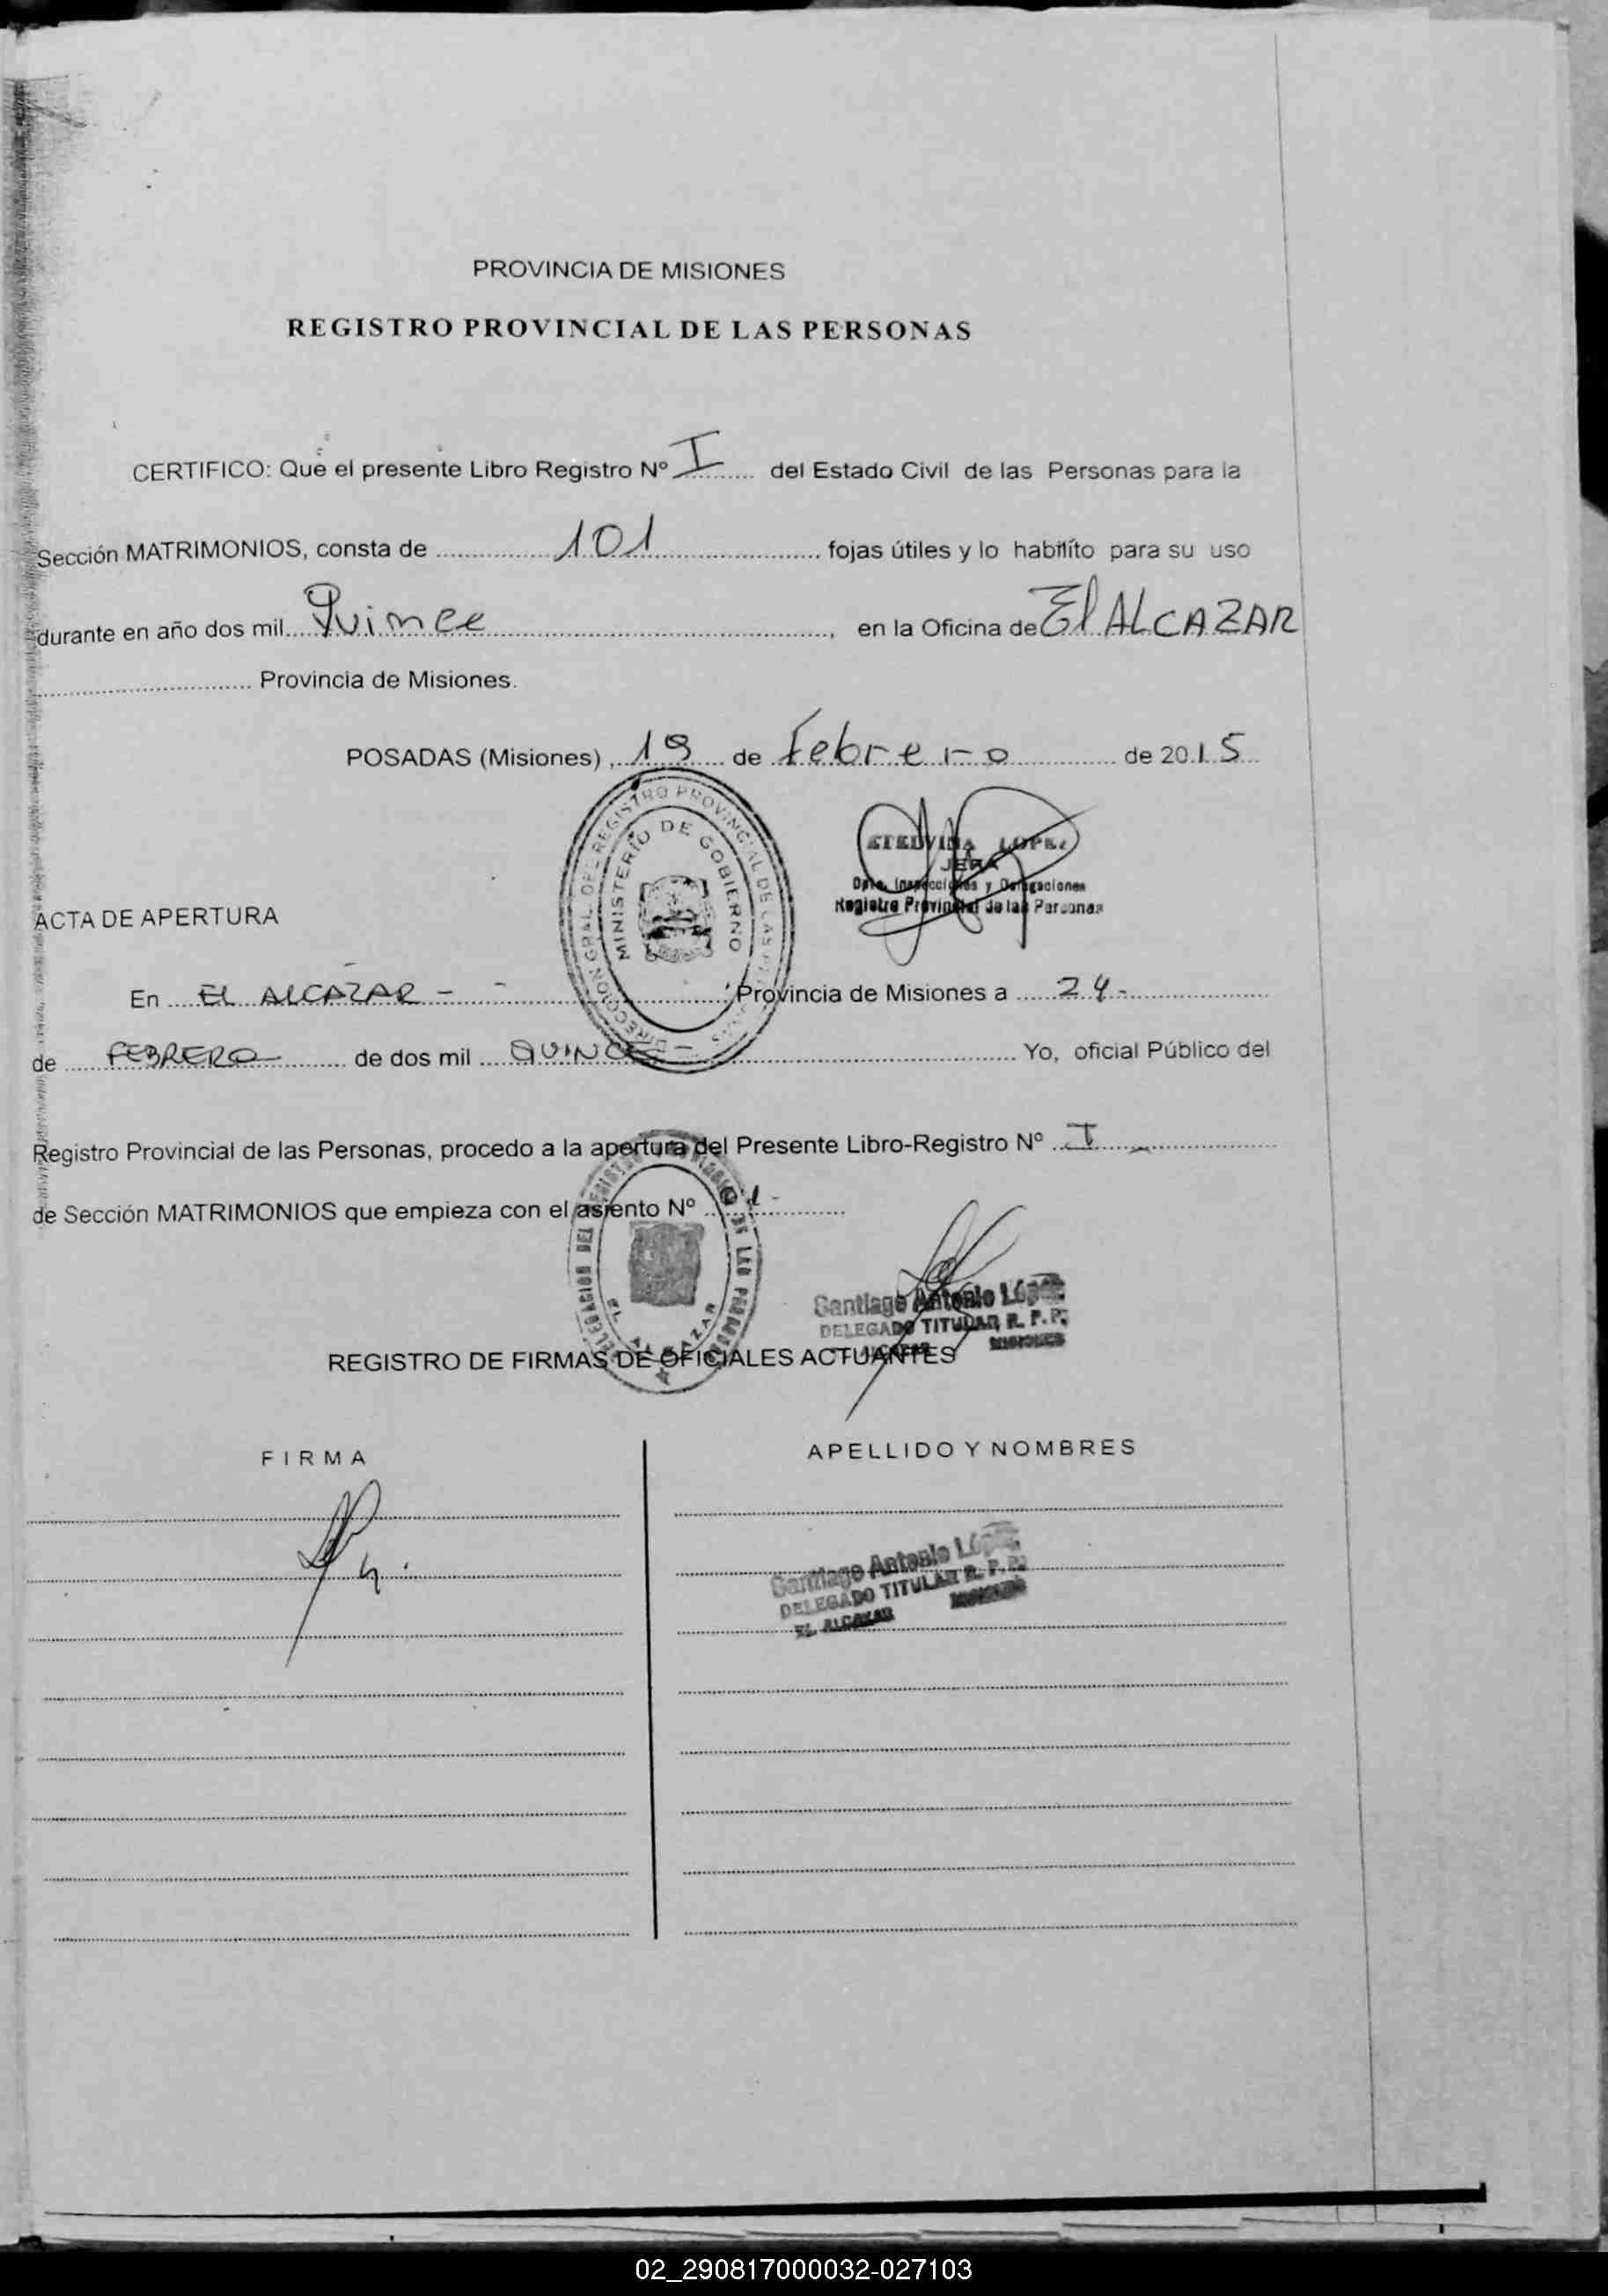 PROVINCIA DE MISIONES
REGISTRO PROVINCIAL DE LAS PERSONAS
CERTIFICO: Que el presente Libro Registro Nº I del Estado Civil de las Personas para la
Sección MATRIMONIOS, consta de 101 fojas útiles y lo habilíto para su uso
durante en año dos mil Quince, en la Oficina de El ALCAZAR
Provincia de Misiones.
POSADAS (Misiones), 19 de Febrero de 2015
DIRECCION GRAL. DEL REGISTRO PROVINCIAL DE LAS PERSONAS
MINISTERIO DE GOBIERNO
ETELVINA LOPEZ
JEFA
Dpto. Inspecciones y Delegaciones
Registro Provincial de las Personas
ACTA DE APERTURA
En EL ALCAZAR - - Provincia de Misiones a 24-
de FEBRERO de dos mil QUINCE Yo, oficial Público del
Registro Provincial de las Personas, procedo a la apertura del Presente Libro-Registro Nº I
de Sección MATRIMONIOS que empieza con el asiento Nº 01-
DELEGACION DEL REGISTRO DE LAS
EL ALCAZAR
Santiago Antonio López
DELEGADO TITULAR R. P. P.
MISIONES
REGISTRO DE FIRMAS DE OFICIALES ACTUANTES
FIRMA APELLIDO Y NOMBRES
Santiago Antonio López
DELEGADO TITULAR R. P. P.
EL ALCAZAR MISIONES
02_290817000032-027103